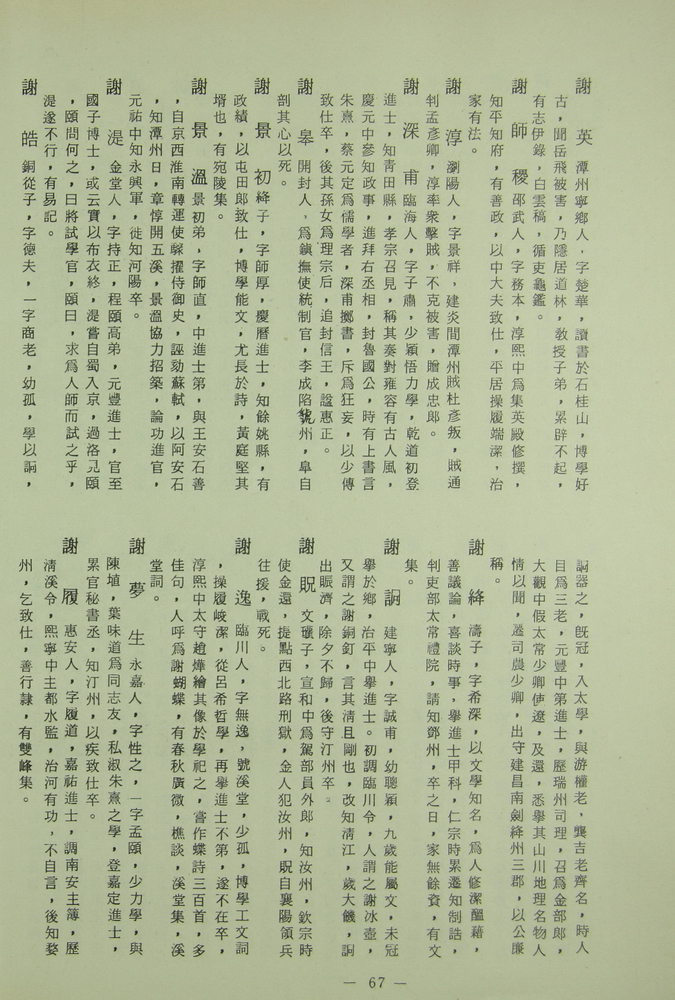 謝英　潭州寧鄉人，字楚華，讀書於石桂山，博學好
古，聞岳飛被害，乃隱居道林，教授子弟，累辟不起，
有志伊錄，白雲稿，循吏龜鑑。
謝師稷　邵武人，字務本，淳熙中爲集英殿修撰，
知平知府，有善政，以中大夫致仕，平居操履端潔，治
家有法。
謝淳　瀏陽人，字景祥，建炎間潭州賊杜彥叛，賊通
判孟彥卿，淳率衆擊賊，不克被害，贈成忠郎。
謝深甫　臨海人，字子肅，少穎悟力學，乾道初登
進士，知青田縣，孝宗召見，稱其奏對雍容有古人風，
慶元中參知政事，進拜右丞相，封魯國公，時有上書言
朱熹，蔡元定爲儒學者，深甫擲書，斥爲狂妄，以少傅
致仕卒，後其孫女爲理宗后，追封信王，諡惠正。
謝皋　開封人，爲鎭撫使統制官，李成陷虢州，皋自
剖其心以死。
謝景初　絳子，字師厚，慶曆進士，知餘姚縣，有
政績，以屯田郎致仕，博學能文，尤長於詩，黃庭堅其
壻也，有宛陵集。
謝景溫　景初弟，字師直，中進士第，與王安石善
，自京西淮南轉運使驟擢侍御史，誣劾蘇軾，以阿安石
，知潭州日，章惇開五溪，景溫協力招築，論功進官，
元祐中知永興軍，徙知河陽卒。
謝湜　金堂人，字持正，程頤高弟，元豐進士，官至
國子博士，或云實以布衣終，湜嘗自蜀入京，過洛見頤
，頤問何之，曰將試學官，頤曰，求爲人師而試之乎，
湜遂不行，有易記。
謝皓　銅從子，字德夫，一字商老，幼孤，學以詗，
詗器之，旣冠，入太學，與游櫂老，龔吉老齊名，時人
目爲三老，元豐中第進士，歷瑞州司理，召爲金部郎，
大觀中假太常少卿使遼，及還，悉擧其山川地理名物人
情以聞，遷司農少卿，出守建昌南劍絳州三郡，以公廉
稱。
謝絳　濤子，字希深，以文學知名，爲人修潔醞藉，
善議論，喜談時事，擧進士甲科，仁宗時累遷知制誥，
判吏部太常禮院，請知鄧州，卒之日，家無餘資，有文
集。
謝詗　建寧人，字誠甫，幼聰穎，九歲能屬文，未冠
擧於鄉，治平中擧進士。初調臨川令，人謂之謝冰壺，
又謂之謝銅釘，言其淸且剛也，改知淸江，歲大饑，詗
出賑濟，除夕不歸，後守汀州卒。
謝貺　文瓘子，宣和中爲駕部員外郎，知汝州，欽宗時
使金還，提點西北路刑獄，金人犯汝州，貺自襄陽領兵
往援，戰死。
謝逸　臨川人，字無逸，號溪堂，少孤，博學工文詞
，操履峻潔，從呂希哲學，再擧進士不第，遂不在卒，
淳熙中太守趙燁繪其像於學祀之，嘗作蝶詩三百首，多
佳句，人呼爲謝蝴蝶，有春秋廣微，樵談，溪堂集，溪
堂詞。
謝夢生　永嘉人，字性之，一字孟頤，少力學，與
陳埴，葉味道爲同志友，私淑朱熹之學，登嘉定進士，
累官秘書丞，知汀州，以疾致仕卒。
謝履　惠安人，字履道，嘉祐進士，調南安主簿，歷
淸溪令，熙寧中主都水監，治河有功，不自言，後知婺
州，乞致仕，善行隷，有雙峰集。
— 67 —